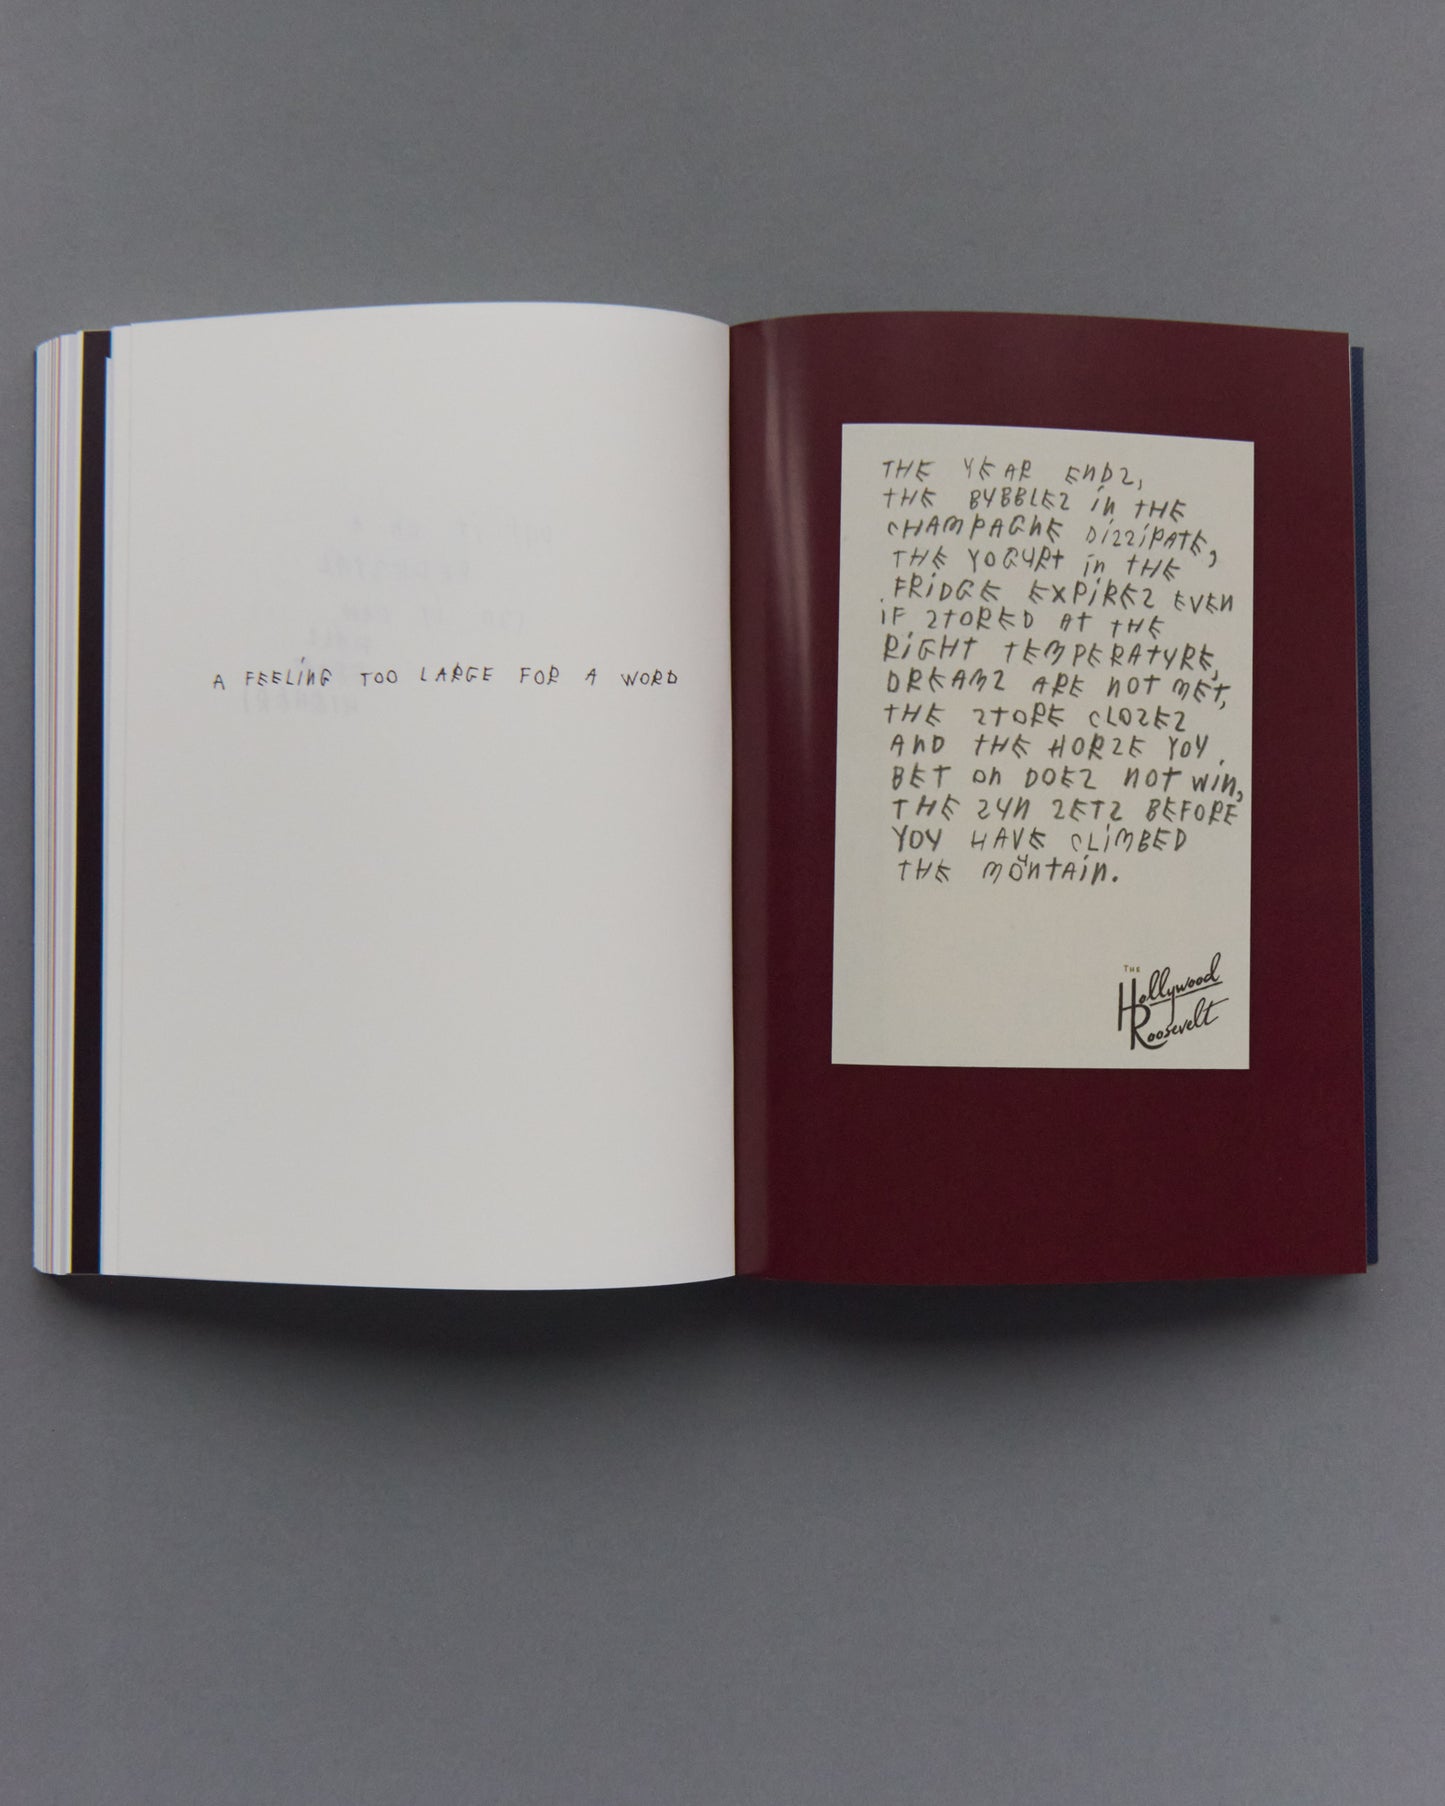 A FEELING TOO LARGE FOR A WORD
THE YEAR ENDS,
THE BUBBLES IN THE
CHAMPAGNE DISSIPATE,
THE YOGURT IN THE
FRIDGE EXPIRES EVEN
IF STORED AT THE
RIGHT TEMPERATURE,
DREAMS ARE NOT MET,
THE STORE CLOSES
AND THE HORSE YOU
BET ON DOES NOT WIN,
THE SUN SETS BEFORE
YOU HAVE CLIMBED
THE MOUNTAIN.
THE
Hollywood
Roosevelt